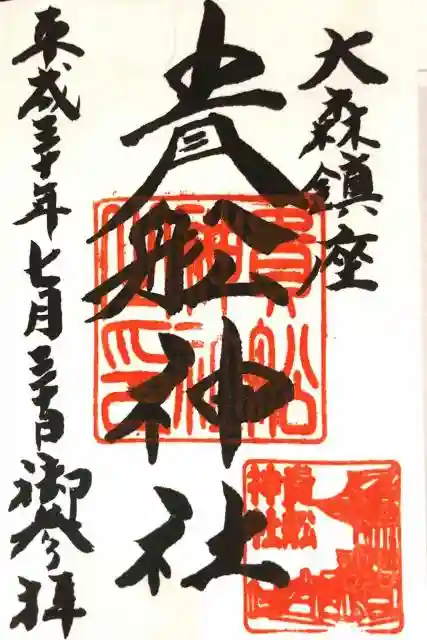 大森鎮座
貴船神社
平成三十年七月三十日御参拝
貴船
神社